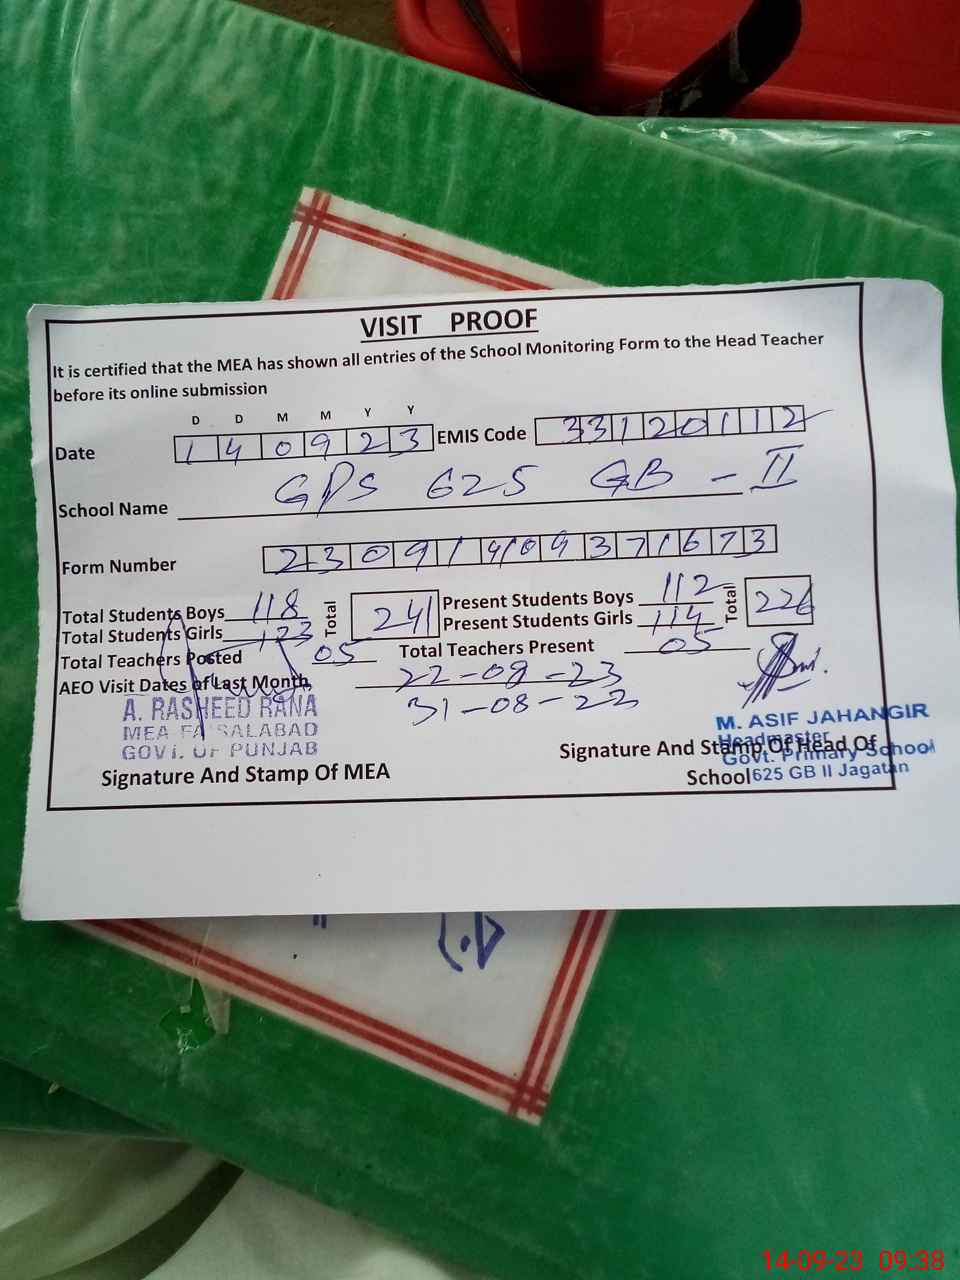 VISIT PROOF
It is certified that the MEA has shown all entries of the School Monitoring Form to the Head Teacher
before its online submission
D D M M Y Y
Date 140923 EMIS Code 33120112
School Name GPS 625 GB - II
Form Number 2309140937 1673
Total Students Boys 118 Total 241 Present Students Boys 112 Total 226
Total Students Girls 123 Present Students Girls 114
Total Teachers Posted 05 Total Teachers Present 05
AEO Visit Dates of Last Month 22-08-23
31-08-23
A. RASHEED RANA
MEA FAISALABAD
GOVT. OF PUNJAB
Signature And Stamp Of MEA
M. ASIF JAHANGIR
Headmaster
Govt. Primary School
625 GB II Jagatan
Signature And Stamp Of Head Of
School
14-09-23 09:38